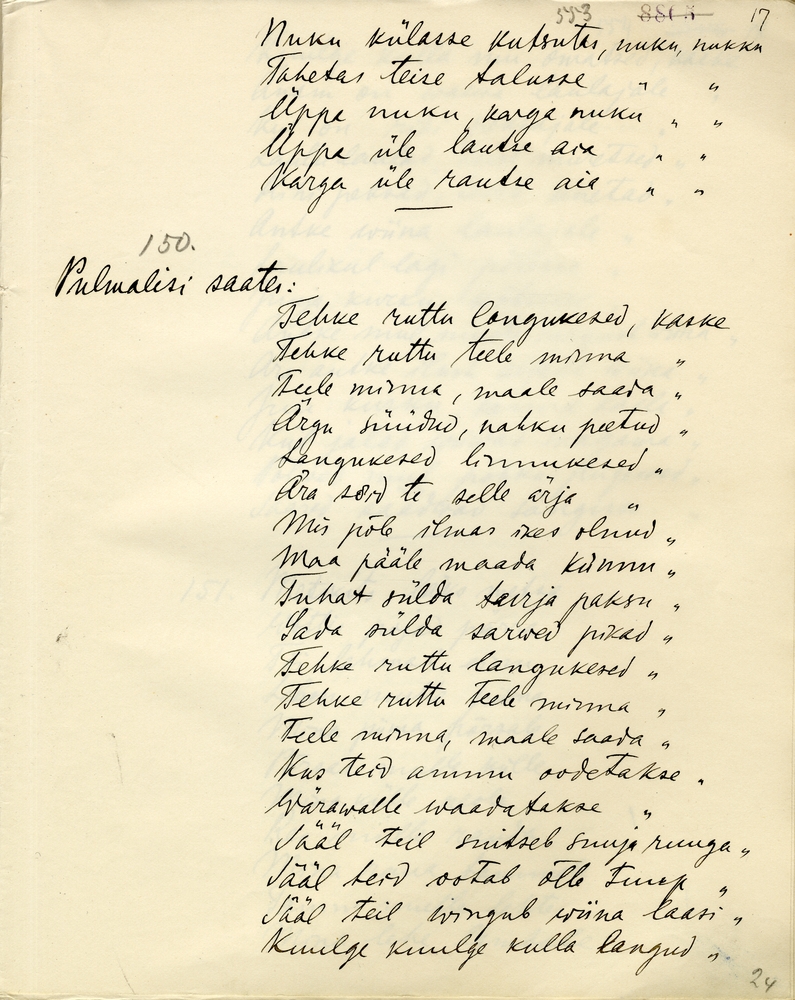 553 8865 17
Nuku külasse kutsutas, nuku, nukku
Tahetas teise talusse " "
Üppa nuku, karga nuku " "
Üppa üle lautse aia " "
Karga üle rautse aia " "
150.
Pulmalisi saates:
Tehke ruttu langukesed, kaske
Tehke ruttu teele minna "
Teele minna, maale saada "
Ärgu süüdud, nahku peetud "
Langukesed linnukesed "
Ära sõid te selle ärja "
Mis põle ilmas ikes olnud "
Maa pääle maada künnu "
Tuhat sülda turja paksu "
Sada sülda sarwed pikad "
Tehke ruttu langukesed "
Tehke ruttu teele minna "
Teele minna, maale saada "
Kus teid ammu oodetakse "
Wärawalle waadatakse "
Sääl teil suitseb suuja ruuga "
Sääl teid ootab õlle tuup "
Sääl teil wingub wiina laasi "
Kuulge kuulge kulla langud "
24